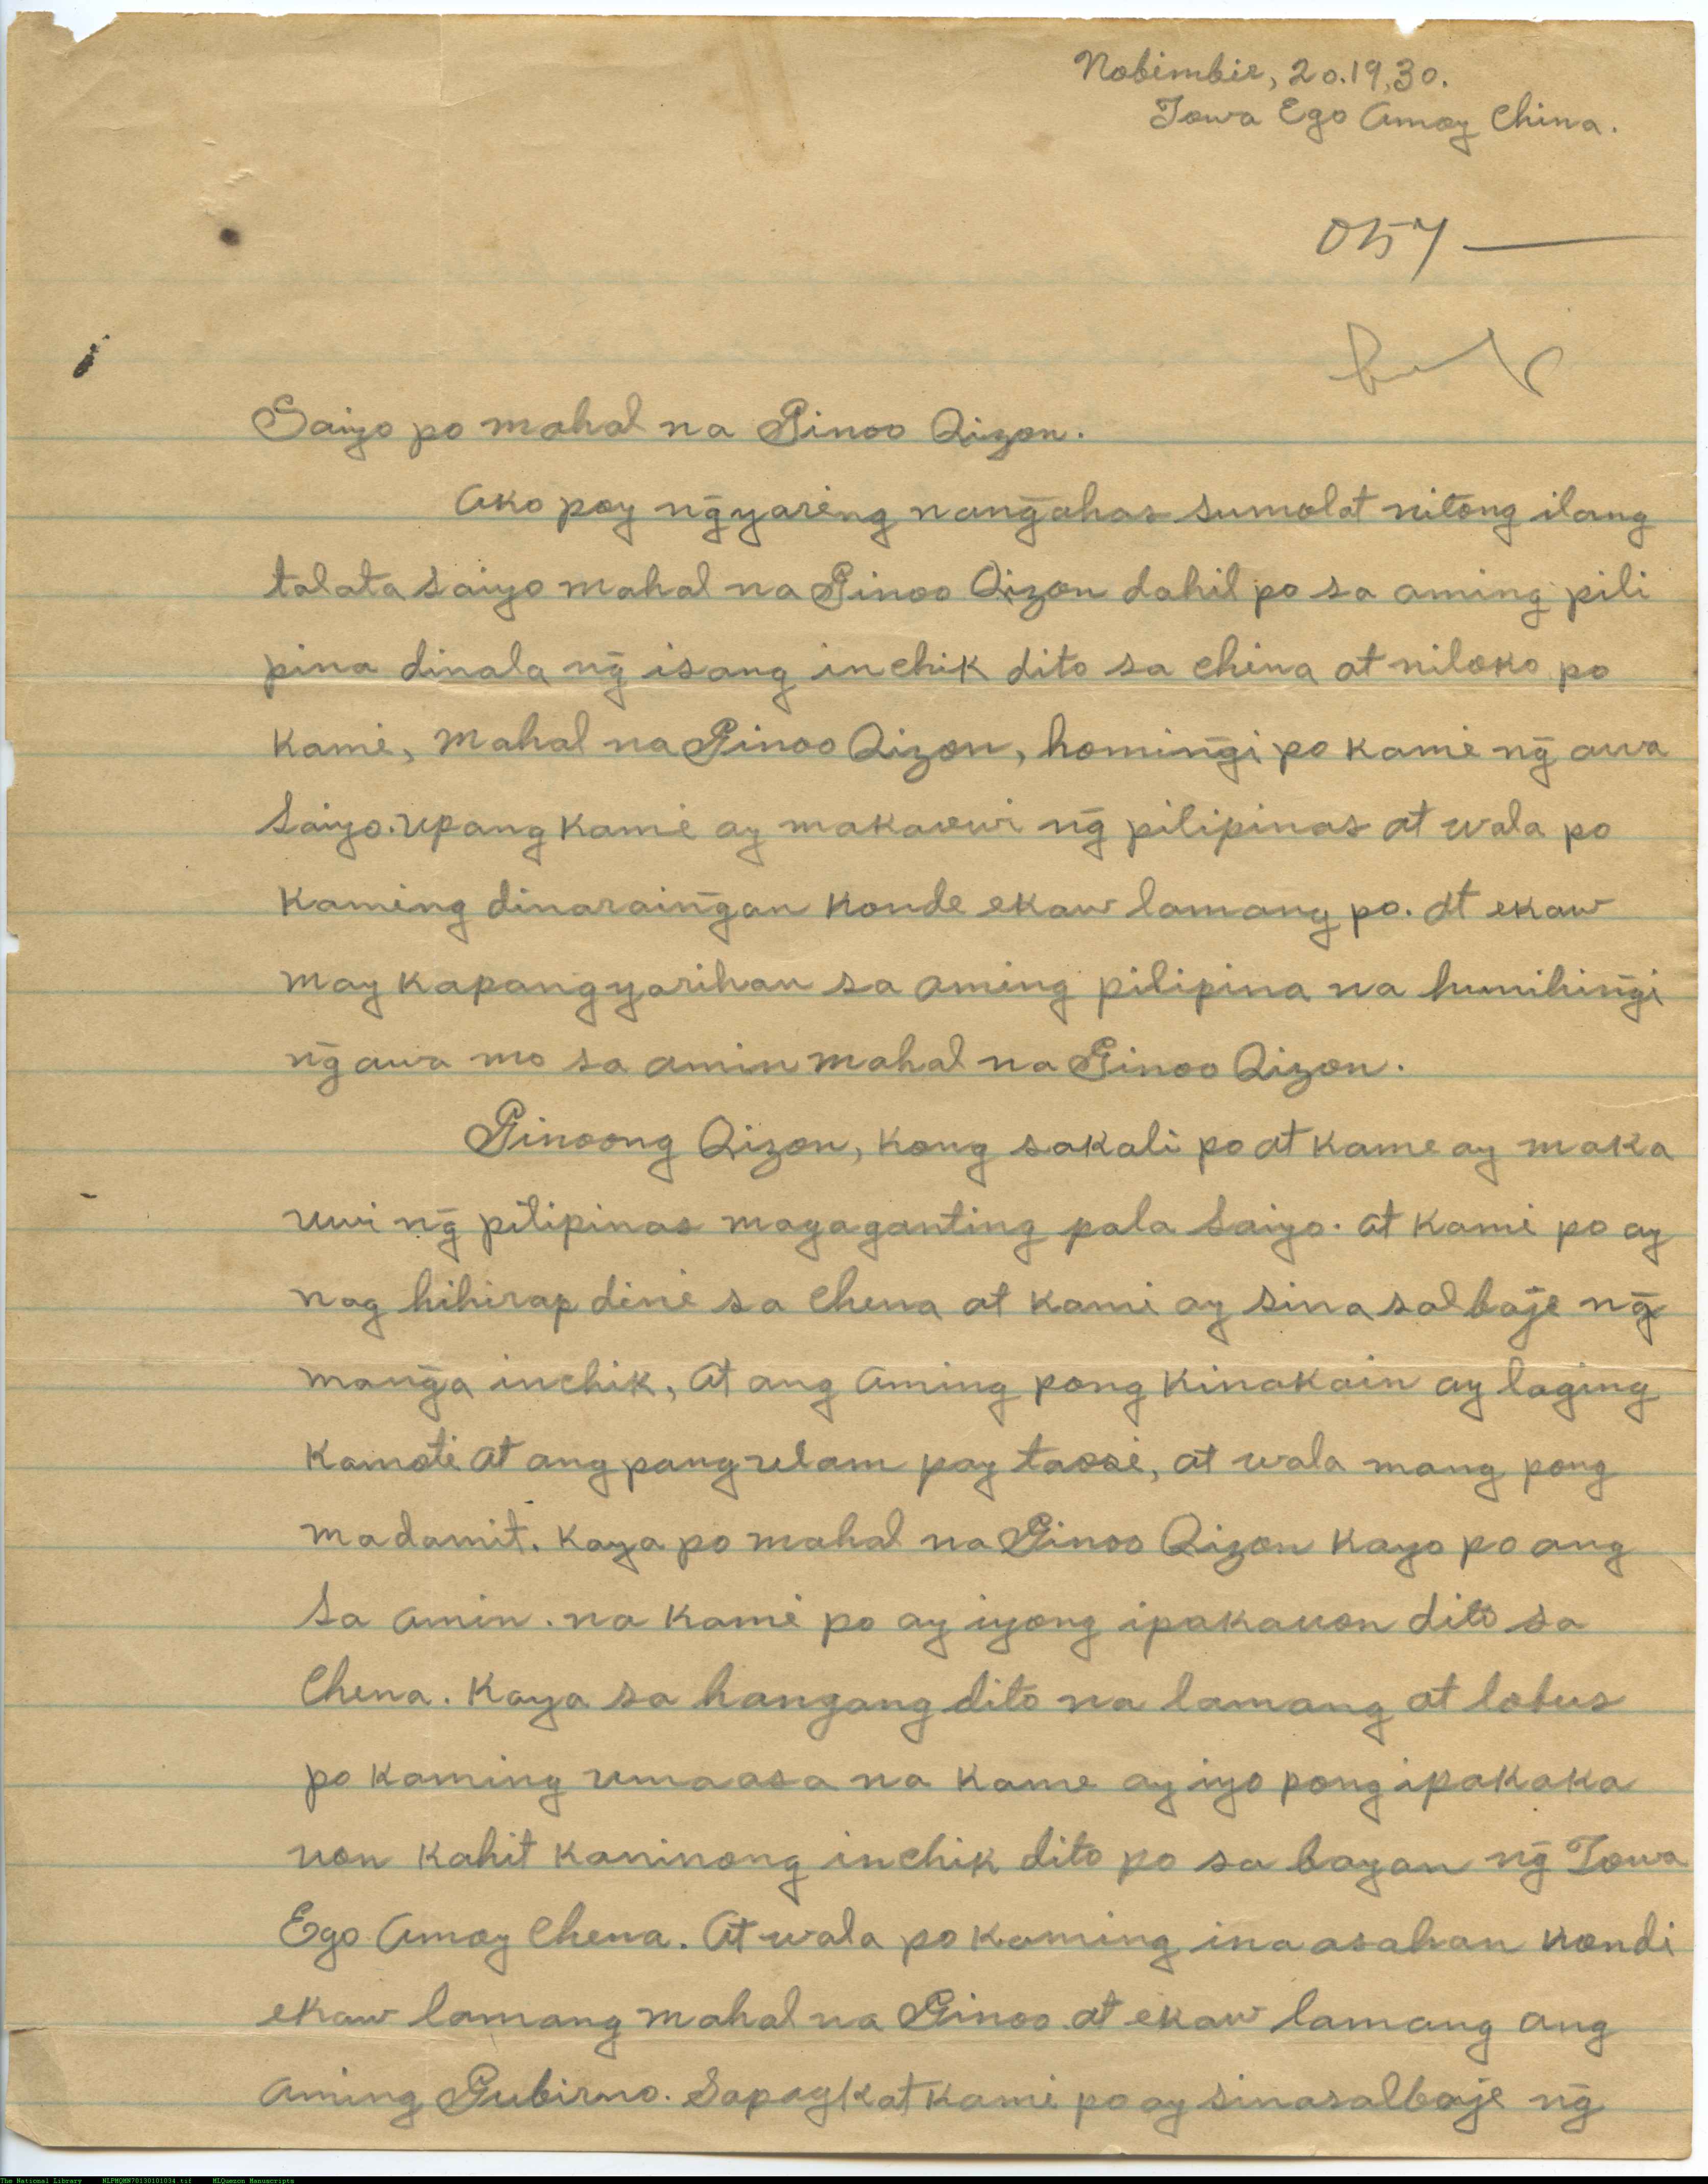 Nobimbie, 20.19,30.
Towa Ego Amoy China.
057
Saiyo po mahal na Ginoo Qizon.
Ako poy ng̃yaring nang̃ahas sumolat nitong ilang
talata saiyo mahal na Ginoo Qizon dahil po sa aming pili
pina dinala ng̃ isang inchik dito sa China at niloko po
kami, mahal na Ginoo Qizon, homing̃i po kami ng̃ awa
saiyo. upang kami ay makaowi ng̃ pilipinas at wala po
kaming dinaraing̃an konde ekaw lamang po. at ekaw
may kapangyarihan sa aming pilipina na humihing̃i
ng̃ awa mo sa amin mahal na Ginoo Qizon.
Ginoong Qizon, kong sakali po at kame ay maka
uwi ng̃ pilipinas magaganting pala saiyo. at kami po ay
nag hihirap dine sa Chena at kami ay sinasalbaje ng̃
mang̃a inchik, at ang aming pong kinakain ay laging
kamoti at ang pang ulam poy taosi, at wala mang pong
madamit. kaya po mahal na Ginoo Qizon kayo po ang
sa amin. na kami po ay iyong ipakauon dito sa
Chena. Kaya sa hangang dito na lamang at lobus
po kaming umaasa na kame ay iyo pong ipakaka
uon kahit kaninong inchik dito po sa bayan ng̃ Towa
Ego Amoy Chena. At wala po kaming inaasahan kondi
ekaw lamang mahal na Ginoo. at ekaw lamang ang
aming Gubirno. Sapagkat kami po ay sinasalbaje ng̃
The National Library NLPMQMN70130101034.tif MLQuezon Manuscripts